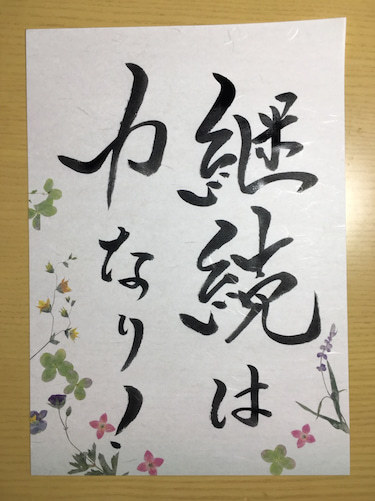 継続は
力なり!